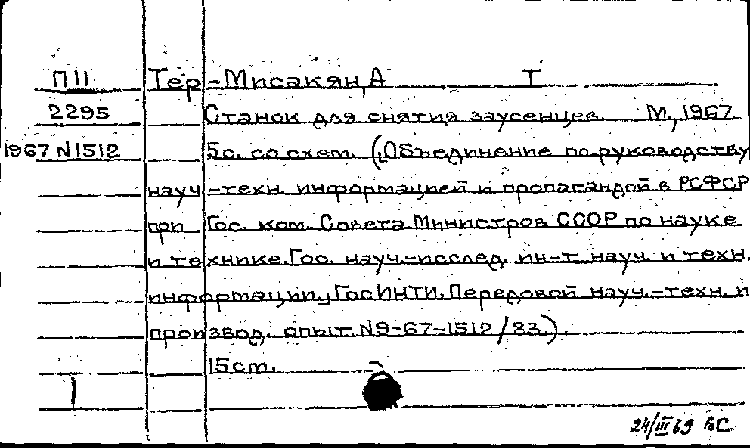 П11 Тер-Мисакян, А Т
2295 Станок для снятия заусенцев М., 1967
1967 N1512 5с. со схем. (Объединение по руководству
науч.-техн. информацией и пропагандой в РСФСР
при Гос. ком. Совета Министров СССР по науке
и технике. Гос. науч.-исслед. ин-т науч. и техн.
информации, ГосИНТИ. Передовой науч.-техн. и
производ. опыт. N9-67-1512/83.).
15ст.
1
24/III 69 ВС